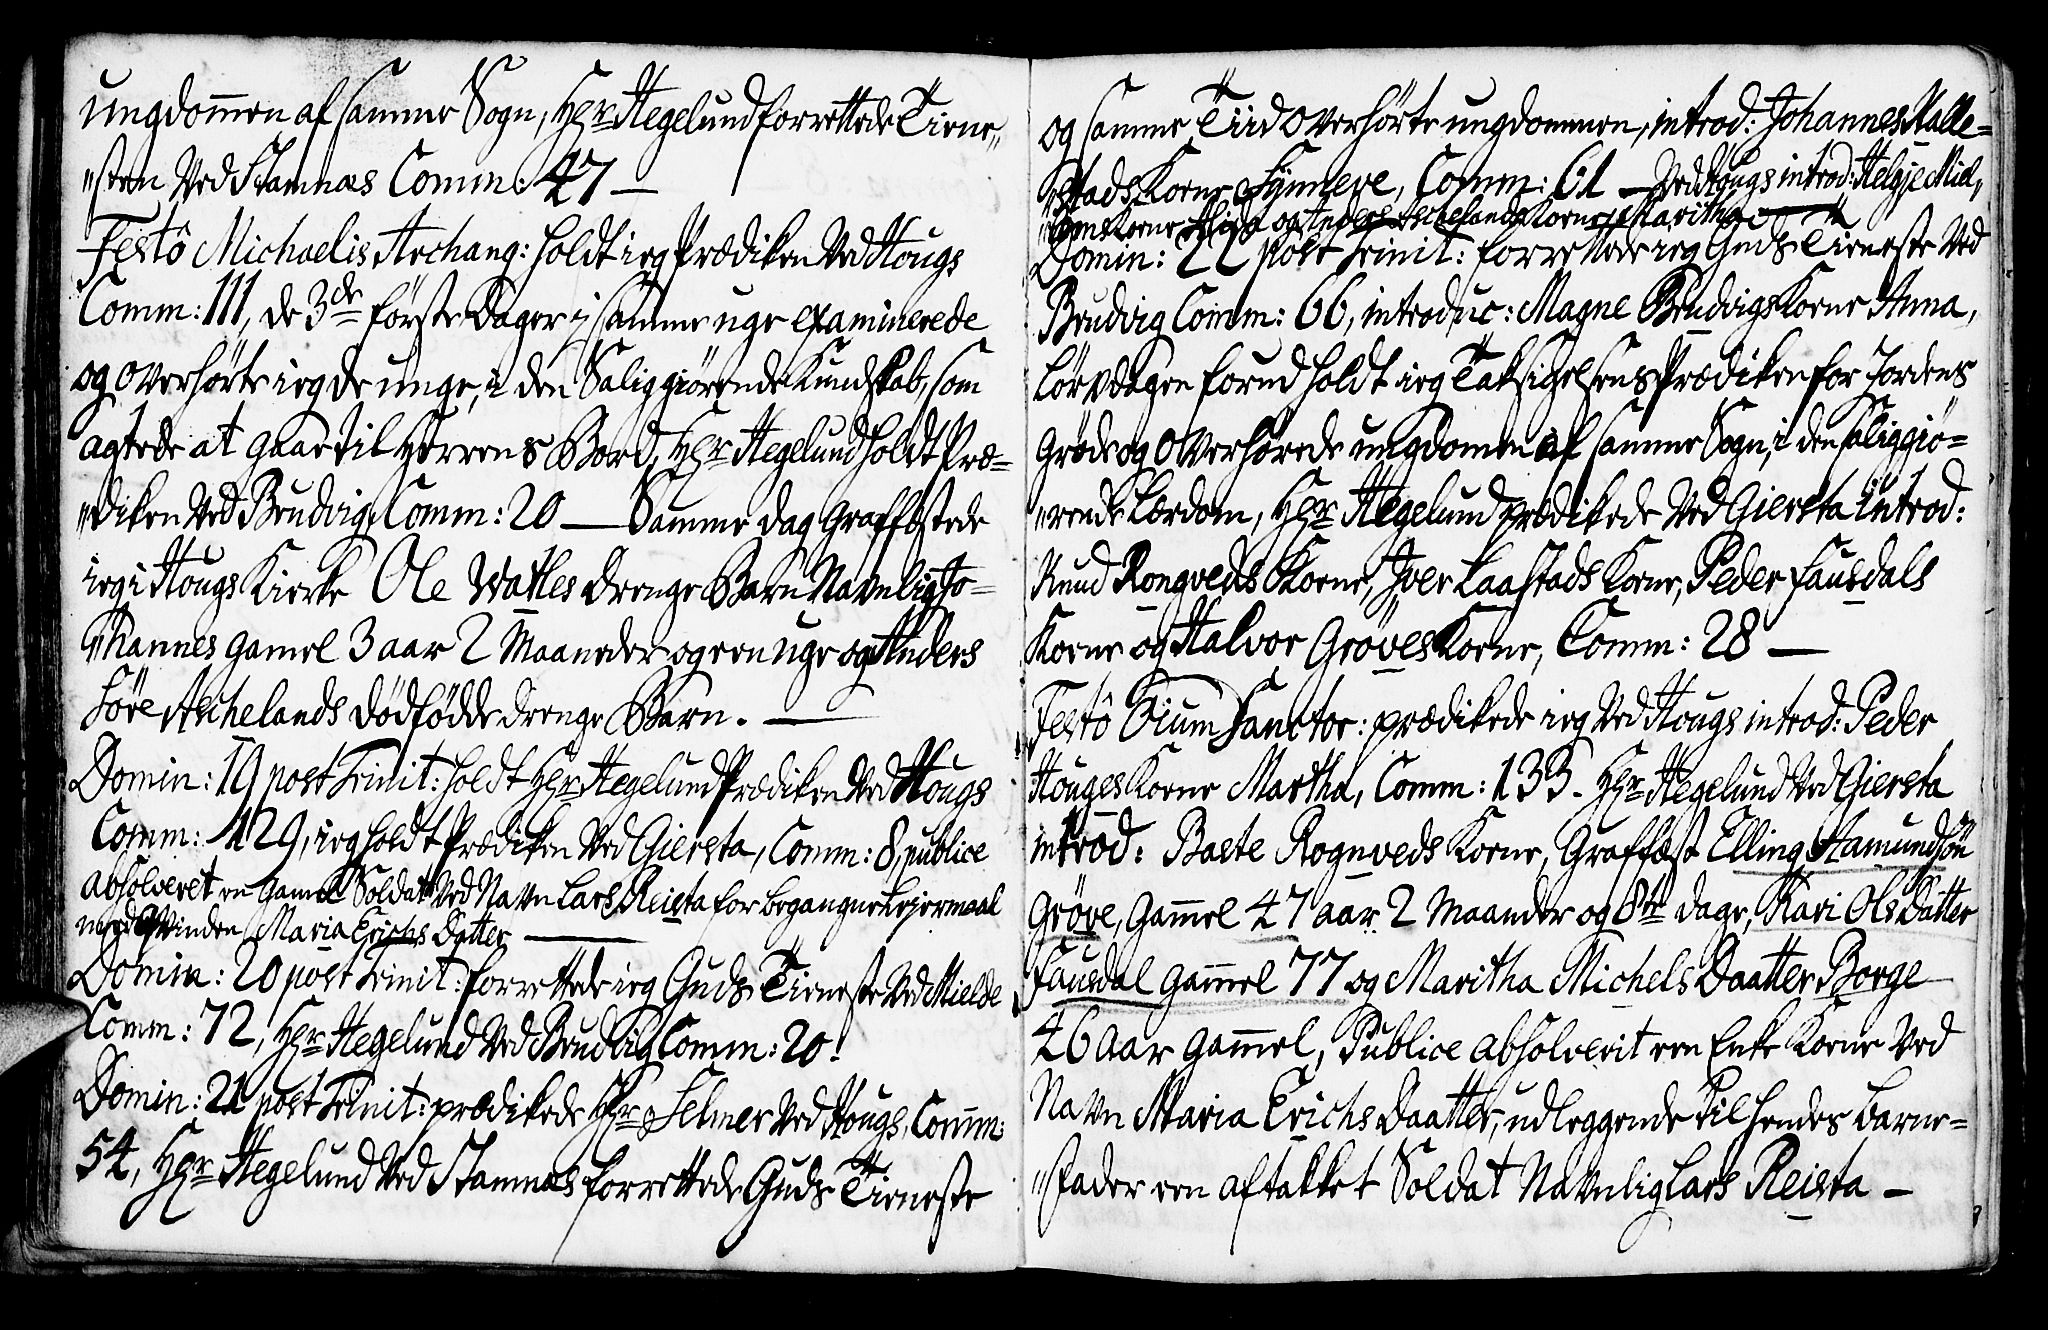 Ungdom̅en af samme Sogn, Hr Hegelund forrettede Tiene„
„sten Ved Stamnæs Comm: 47 —
Festô Michaelis Archang: holdt ieg Prædiken Ved Hougs
Comm: 111, de 3de første Dager i samme uge examinerede
og overhørte ieg de unge, i den Saliggiørende Kundskab, som
agtede at gaae til Herrens Bord, Hr Hegelund holdt Præ=
„diken Ved Brudvig, Comm: 20 — Samme dag Graffæstede
ieg i Hougs Kirke Ole Watles drenge Barn Navnlig Jo=
„hannes gamel 3 aar 2 Maaneder og een uge og Anders
Søre Aschelands dødfødde drenge Barn. —
Domin: 19 post Trinit: holdt Hr Hegelund Prædiken Ved Hougs
Comm: 129, ieg holdt Prædiken Ved Giersta, Comm: 8, publice
absolveret en gamel Soldat Ved Navn Lars Reista for begangne Lejermaal
med Qvinden Maria Erichs Datter —
Domin: 20 post Trinit: forrettede ieg Guds Tieneste Ved Mielde
Comm: 72, Hr Hegelund Ved Brudvig Comm: 20.
Domin: 21 post Trinit: prædikede Hr Selmer Ved Hougs, Comm:
54, Hr Hegelund Ved Stamnæs forrettede Guds Tieneste
og samme Tiid overhørte ungdommen, introd: Johannes Nalle=
„stads Kone Synneve, Comm: 61 — Ved Hougs introd: Helgje Miel„
og Anders Aschelands Kone Maritha —
Domin: 22 post Trinit: forrettede ieg Guds Tieneste Ved
Brudvig Comm: 66, introduc: Magne Brudvigs Kone Anna,
Løevdagen forud holdt ieg Taksigelsens Prædiken for Jordens
Grøde og overhørede ungdomen af samme Sogn, i den saliggiø=
„rende Lærdom, Hr Hegelund prædikede Ved Giersta introd:
Knud Rongveds Kone, Iver Laastads Kone, Peder Fausdals
Kone og Halvor Grøves Kone, Comm: 28 —
Festô Oium Sanctor: prædikede ieg Ved Hougs introd: Peder
Houges Kone Martha, Comm: 133. Hr Hegelund Ved Giersta
introd: Baste Rognveds Kone, Graffæst Elling Hamundsøn
Grøve, Gam̅el 47 aar 2 Maander og 8te dage, Kari Ols Datter
Fausdal gam̅el 77 og Maritha Michels Daatter Borge
46 aar gam̅el, Publice absolverit een Enke Kone Ved
Navn Maria Erichs Daatter, udleggende til hendes Barne=
„fader een aftakket Soldat Navnlig Lars Reista —